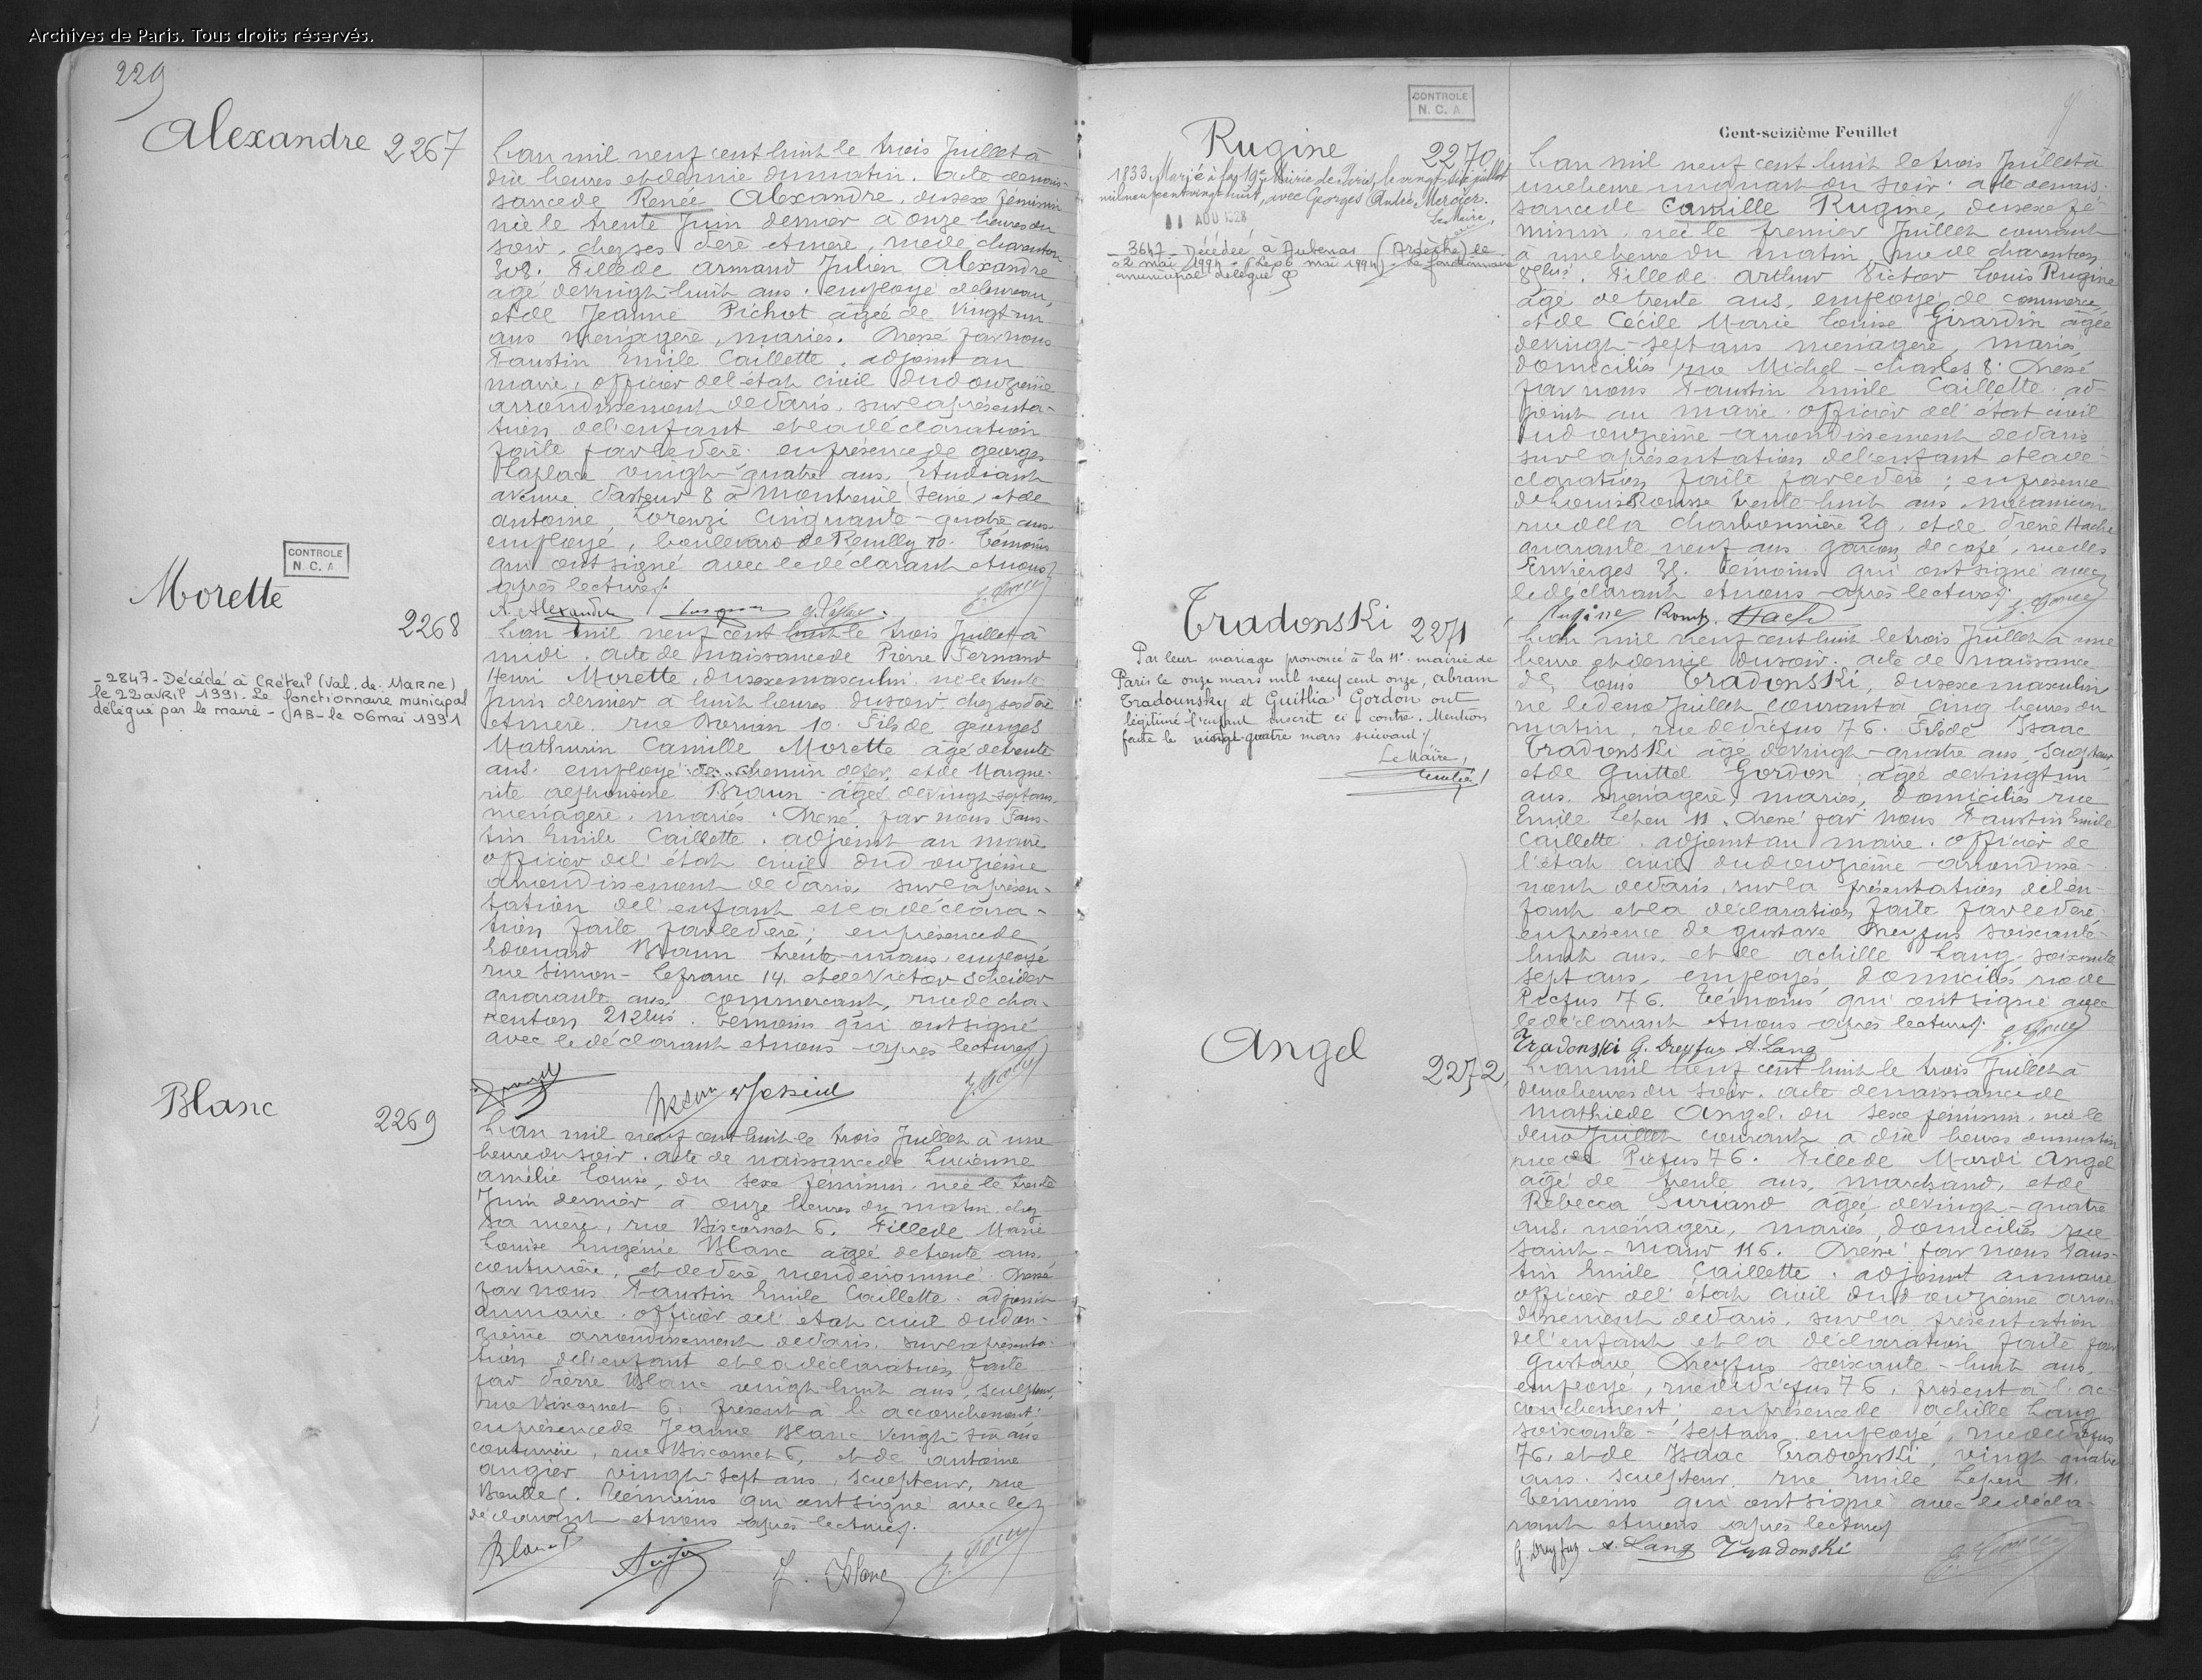 Archives de Paris. Tous droits réservés.
229
Alexandre 2267
L'an mil neuf cent huit le trois Juillet à
dix heures et demie du matin. acte de nais-
sance de Renée Alexandre, du sexe féminin
née le trente Juin dernier à onze heures du
soir, chez ses père et mère, rue de charenton
308. Fille de Armand Julien Alexandre
agé de vingt-huit ans. employé de bureau,
et de Jeanne Pichot agée de vingt-un
ans ménagère, mariés. Dressé par nous
Faustin Emile Caillette. adjoint au
maire, officier de l'état civil du douzième
arrondissement de Paris, sur la présenta-
tion de l'enfant et la déclaration
faite par le père: en présence de georges
Laplace vingt-quatre ans, Etudiant
avenue Pasteur 8 à Montreuil (Seine) et de
antoine Lorenzi cinquante-quatre ans
employé, boulevard de Reuilly 10. Témoins
qui ont signé avec le déclarant et nous
après lecture.
A. Alexandre
CONTROLE
N. C. A
Morette
2268
- 2847 - Décédé à Créteil (Val. de. Marne)
le 22 avril 1991. Le fonctionnaire municipal
délégué par le maire - JAB - le 06 mai 1991
L'an mil neuf cent huit le trois Juillet à
midi. acte de naissance de Pierre Fernand
Henri Morette, du sexe masculin, né le trente
Juin dernier à huit heures du soir chez ses père
et mère. rue Dorian 10. Fils de georges
Mathurin Camille Morette âgé de trente
ans. employé de chemin de fer, et de Margue-
rite alphonsine Braun - âgée de vingt-sept ans,
ménagère. mariés. Dressé par nous Faus-
tin Emile Caillette. adjoint au maire
officier de l'état civil du douzième
arrondissement de Paris, sur la présen-
tation de l'enfant et la déclara-
tion faite par le père; en présence de
Edouard Braun trente-un ans, employé
rue Simon-lefranc 14, et de Victor Scheider
quarante ans. commercant, rue de cha-
renton 212 bis. Témoins qui ont signé
avec le déclarant et nous après lecture
Blanc
2269
L'an mil neuf cent huit le trois Juillet à une
heure du soir. acte de naissance de Lucienne
amélie Louise, du sexe féminin. née le trente
Juin dernier à onze heures du matin. chez
sa mère, rue Biscornet 6. Fille de Marie
Louise Eugénie Blanc agée de trente ans.
couturière, et de père non dénommé. Dressé
par nous Faustin Emile Caillette. adjoint
au maire. officier de l'état civil du dou-
zième arrondissement de Paris. sur la présenta-
tion de l'enfant et la déclaration faite
par Pierre Blanc vingt-huit ans, sculpteur,
rue Biscornet 6, présent à l'accouchement:
en présence de Jeanne Blanc vingt-six ans
couturière, rue Biscornet 6, et de antoine
augier vingt-sept ans, sculpteur, rue
Boulle 5. Témoins qui ont signé avec le
déclarant et nous après lecture.
Blanc P
J. Blanc
CONTROLE
N. C. A
Cent-seizième Feuillet
Rugine
2270
1833. Marié à la 19e Mairie de Paris, le vingt-six juillet
mil neuf cent vingt huit, avec Georges André Mercier.
11 AOU 1928
Le Maire,
- 3647 - Décédée à Aubenas (Ardèche) le
02 mai 1994 - (Le 06 mai 1994) - Le fonctionnaire
municipal délégué
L'an mil neuf cent huit le trois Juillet à
une heure un quart du soir: acte de nais-
sance de Camille Rugine, du sexe fé-
minin, née le premier Juillet courant
à une heure du matin, rue de charenton
. Fille de Arthur Victor Louis Rugine
âgé de trente ans, employé de commerce,
et de Cécile Marie Louise Girardin âgée
de vingt-sept ans ménagère, mariés,
domiciliés rue Michel-charles 8. Dressé
par nous Faustin Emile Caillette. ad-
joint au maire. officier de l'état civil
du douzième arrondissement de Paris
sur la présentation de l'enfant et la dé-
claration faite par le père; en présence
de Louis Rousse trente-huit ans mécanicien
rue de la charbonnière 29, et de René Hache
quarante neuf ans garçon de café, rue des
Envierges 31. Témoins qui ont signé avec
le déclarant et nous après lecture.
Rugine Hach
Tradonski 2271
Par leur mariage prononcé à la 11e mairie de
Paris le onze mars mil neuf cent onze, abram
Tradounsky et Guithia Gordon ont
légitimé l'enfant inscrit ci-contre. Mention
faite le vingt-quatre mars suivant.
Le Maire,
L'an mil neuf cent huit le trois Juillet à une
heure et demie du soir. acte de naissance
de Louis Tradonski, du sexe masculin
né le deux Juillet courant à cinq heures du
matin, rue de Picpus 76. Fils de Isaac
Tradonski âgé de vingt-quatre ans, sculpteur
et de Guittel Gordon. âgée de vingt un
ans. ménagère, mariés, domiciliés rue
Emile Lepeu 11. Dressé par nous Faustin Emile
Caillette. adjoint au maire. officier de
l'état civil du douzième arrondisse-
ment de Paris, sur la présentation de l'en-
fant et la déclaration faite par le père;
en présence de gustave Dreyfus soixante-
huit ans, et de achille Lang soixante
sept ans, employés domiciliés rue de
Picpus 76. Témoins qui ont signé avec
le déclarant et nous après lecture.
Tradonski G. Dreyfus A. Lang
Angel
2272
L'an mil neuf cent huit le trois Juillet à
deux heures du soir. acte de naissance de
Mathilde Angel. du sexe féminin. née le
deux Juillet courant à dix heures du matin
rue de Picpus 76. Fille de Mordi Angel
âgé de trente ans, marchand, et de
Rebecca Suriano âgée de vingt-quatre
ans. ménagère, mariés, domiciliés rue
Saint-Maur 116. Dressé par nous Faus-
tin Emile Caillette. adjoint au maire
officier de l'état civil du douzième arron-
dissement de Paris, sur la présentation
de l'enfant et la déclaration faite par
Gustave Dreyfus soixante-huit ans,
employé, rue de Picpus 76, présent à l'ac-
couchement; en présence de achille Lang
soixante-sept ans employé, rue de Picpus
76, et de Isaac Tradonski, vingt quatre
ans. sculpteur, rue Emile Lepeu 11.
Témoins qui ont signé avec le décla-
rant et nous après lecture
G. Dreyfus A. Lang Tradonski